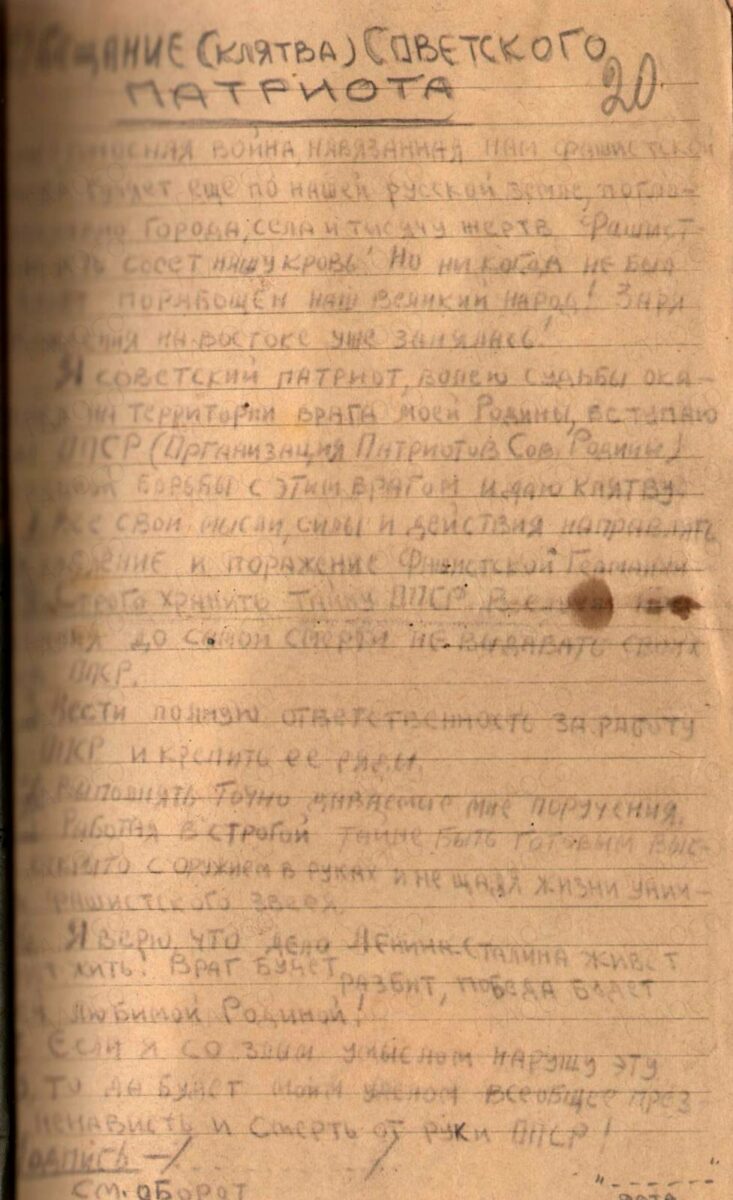 ЕЩАНИЕ (КЛЯТВА) СОВЕТСКОГО
ПАТРИОТА
20
НОСНАЯ ВОЙНА, НАВЯЗАННАЯ НАМ ФАШИСТСКОЙ
ЕЩЕ ПО НАШЕЙ РУССКОЙ ЗЕМЛЕ,
ГОРОДА, СЕЛА И ТЫСЯЧУ ЖЕРТВ ФАШИСТ-
СОСЕТ НАШУ КРОВЬ! НО НИКОГДА НЕ БЫЛ
ПОРАБОЩЕН НАШ ВЕЛИКИЙ НАРОД! ЗАРЯ
НА ВОСТОКЕ УЖЕ ЗАНЯЛАСЬ!
Я СОВЕТСКИЙ ПАТРИОТ, ВОЛЕЮ СУДЬБЫ ОКА-
НА ТЕРРИТОРИИ ВРАГА МОЕЙ РОДИНЫ, ВСТУПАЮ
ОПСР (ОРГАНИЗАЦИЯ ПАТРИОТОВ СОВ. РОДИНЫ)
БОРЬБЫ С ЭТИМ ВРАГОМ И ДАЮ КЛЯТВУ:
ВСЕ СВОИ МЫСЛИ, СИЛЫ И ДЕЙСТВИЯ НАПРАВЛЯТЬ
И ПОРАЖЕНИЕ ФАШИСТСКОЙ ГЕРМАНИИ
СТРОГО ХРАНИТЬ ТАЙНУ ОПСР.
ДО САМОЙ СМЕРТИ НЕ ВЫДАВАТЬ СВОИХ
ОПСР.
НЕСТИ ПОЛНУЮ ОТВЕТСТВЕННОСТЬ ЗА РАБОТУ
ОПСР И КРЕПИТЬ ЕЕ РЯДЫ.
4. ВЫПОЛНЯТЬ ТОЧНО ДАВАЕМЫЕ МНЕ ПОРУЧЕНИЯ.
РАБОТАЯ В СТРОГОЙ ТАЙНЕ БЫТЬ ГОТОВЫМ ВЫС-
С ОРУЖИЕМ В РУКАХ И НЕ ЩАДЯ ЖИЗНИ УНИЧ-
ФАШИСТСКОГО ЗВЕРЯ.
Я ВЕРЮ, ЧТО ДЕЛО ЛЕНИНА-СТАЛИНА ЖИВЕТ
ЖИТЬ! ВРАГ БУДЕТ РАЗБИТ, ПОБЕДА БУДЕТ
ЛЮБИМОЙ РОДИНОЙ!
ЕСЛИ Я СО ЗЛЫМ УМЫСЛОМ НАРУШУ ЭТУ
ТО ДА БУДЕТ МОИМ УДЕЛОМ ВСЕОБЩЕЕ ПРЕЗ
НЕНАВИСТЬ И СМЕРТЬ ОТ РУКИ ОПСР!
ПОДПИСЬ —
СМ. ОБОРОТ
ДАТА